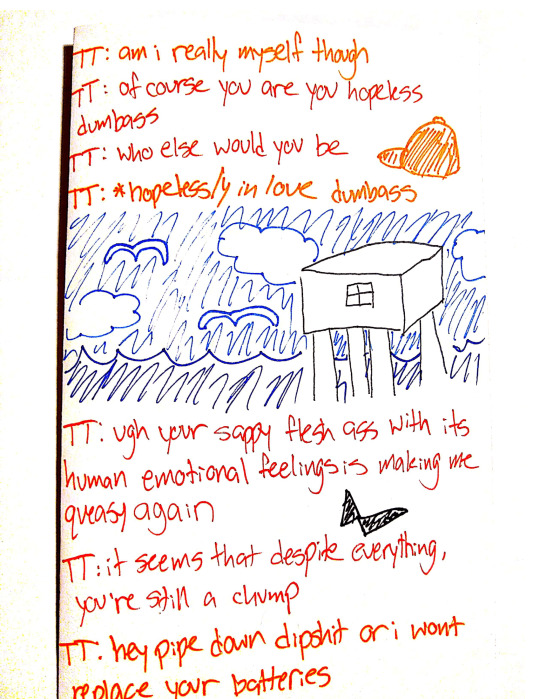 TT: am i really myself though
TT: of course you are you hopeless
dumbass
TT: who else would you be
TT: *hopelessly in love dumbass
TT: ugh your sappy flesh ass with its
human emotional feelings is making me
queasy again
TT: it seems that despite everything,
you're still a chump
TT: hey pipe down dipshit or i wont
replace your batteries